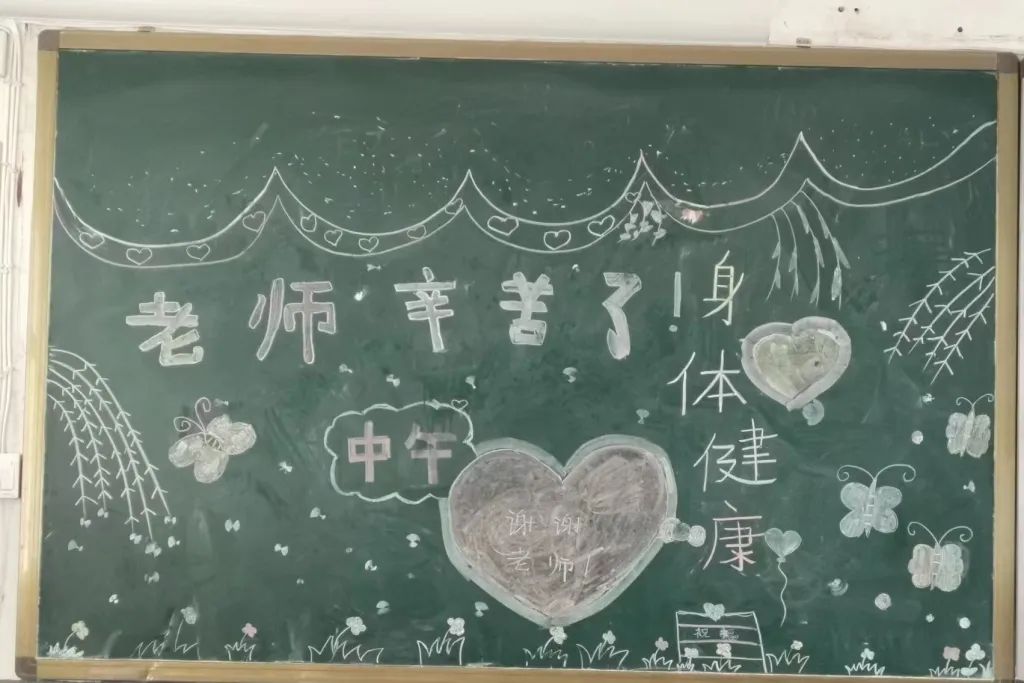 老师辛苦了!
身体健康
中午
谢谢
老师!